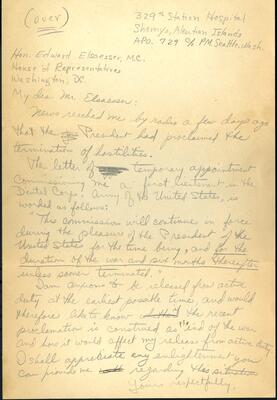 (over)
329th Station Hospital
Shemya, Aleutian Islands
APO. 729 c/o P.M. Seattle, Wash.
Hon. Edward Elsaesser, M.C.
House of Representatives
Washington, DC
My dear Mr. Elsaesser:
News reached me by radio a few days ago
that the President had proclaimed the
termination of hostilities.
The letter of temporary appointment
commissioning me a first lieutenant in the
Dental Corps, Army of the United States, is
worded as follows:
"This commission will continue in force
during the pleasure of the President of the
United States for the time being, and for the
duration of the war and six months thereafter
unless sooner terminated."
I am anxious to be released from active
duty at the earliest possible time, and would
therefore like to know the recent
proclamation is construed as end of the war
and how it would affect my release from active duty.
I shall appreciate any enlightenment you
can provide me regarding this situation
Yours respectfully,